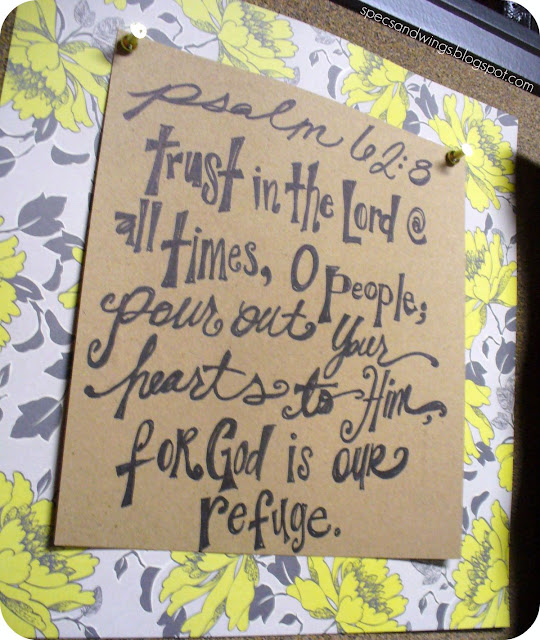 specsandwings.blogspot.com
psalm 62:8
trust in the Lord @
all times, O people;
pour out your
hearts to Him,
for God is our
refuge.